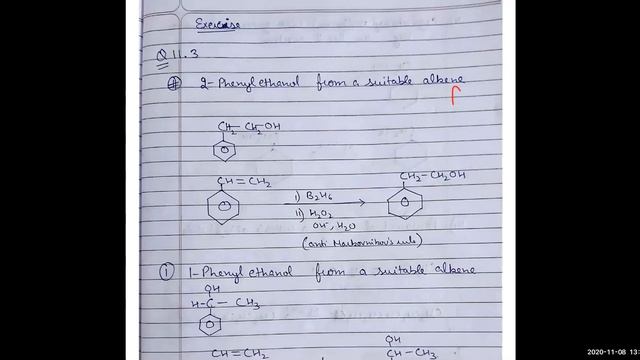 Exercise
Q 11.3
2-Phenylethanol from a suitable alkene
CH2-CH2OH
CH=CH2
i) B2H6
ii) H2O2
OH-, H2O
CH2-CH2OH
(anti Markovnikov's rule)
i 1-Phenyl ethanol from a suitable alkene
OH
H-C-CH3
CH=CH2
OH
CH-CH3
2020-11-08 13: